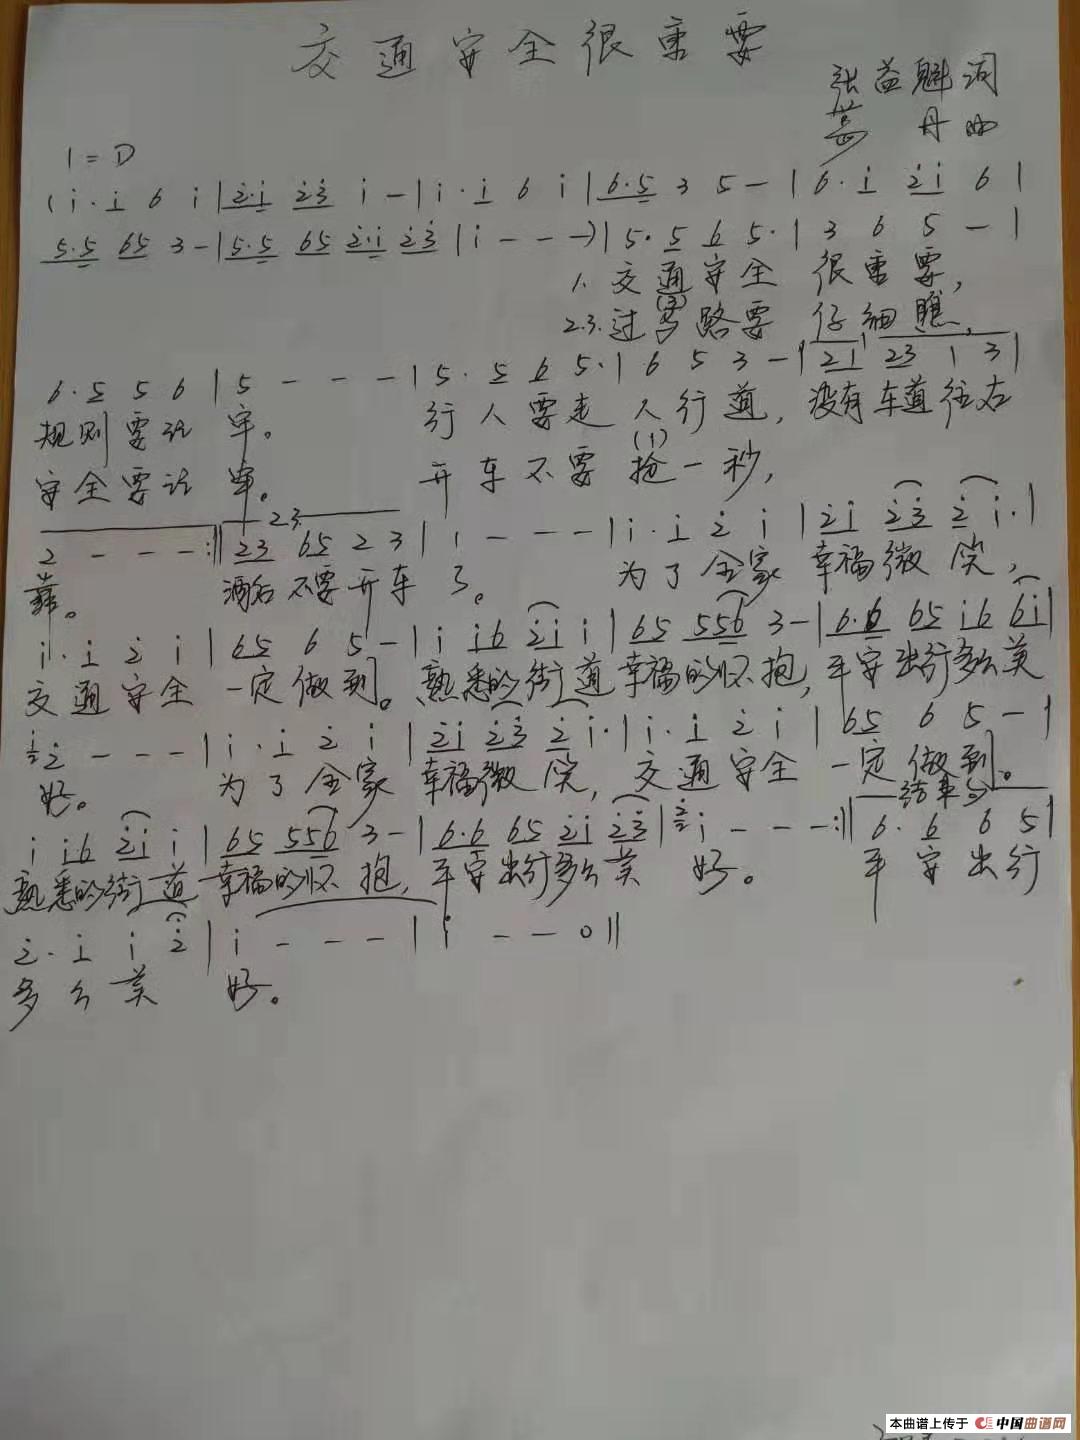 交通安全很重要
张益魁词
丹曲
1=D
(i·i 6 i|2·i 23 i -|i·i 6 i|6·5 3 5 -|6·i 2i 6|
5·5 65 3 -|5·5 65 2·i 23|i - - -)|5·5 6 5·|3 6 5 -|
1.交通安全 很重要,
(3)
2.3.过马路要 仔细瞧,
6·5 5 6|5 - - -|5·5 6 5·|6 5 3 -|21 23 1 3|
规则要记 牢。 行人要走 人行道, 没有车道往右
(1)
安全要记 牢。 开车不要抢一秒,
2.3.
2 - - -:||23 65 2 3|1 - - -|i·i 2 i|2i 23 2 i·|
靠。 酒后不要开车 了。 为了全家 幸福微笑,
i·i 2 i|65 6 5 -|i i6 2i i|65 556 3 -|6·6 65 i6 6i|
交通安全 一定做到。熟悉的街道幸福的怀抱,平安出行多么美
2 - - -|i·i 2 i|2i 23 2 i·|i·i 2 i|65 6 5 -|
好。 为了全家 幸福微笑, 交通安全 一定做到。
结束句
i i6 2i i|65 556 3 -|6·6 65 2i 23|i - - -:||6·6 6 5|
熟悉的街道幸福的怀抱,平安出行多么美 好。 平安出行
2·i i 2|i - - -|i - - 0||
多么美 好。
本曲谱上传于 中国曲谱网